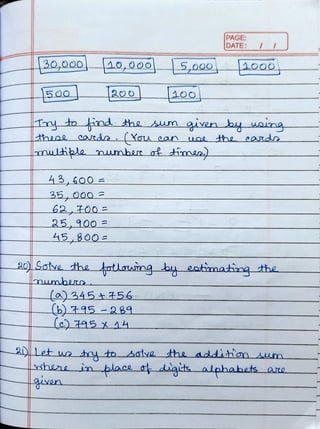 PAGE:
DATE: / /
30,000 10,000 5,000 1000
500 200 100
Try to find the sum given by using
these cards. (You can use the cards
multiple number of times)
43,600 =
35,000 =
62,700 =
25,900 =
45,800 =
20) Solve the following by estimating the
numbers.
(a) 345 + 756
(b) 795 - 289
(c) 795 x 14
21) Let us try to solve the addition sum
where in place of digits alphabets are
given